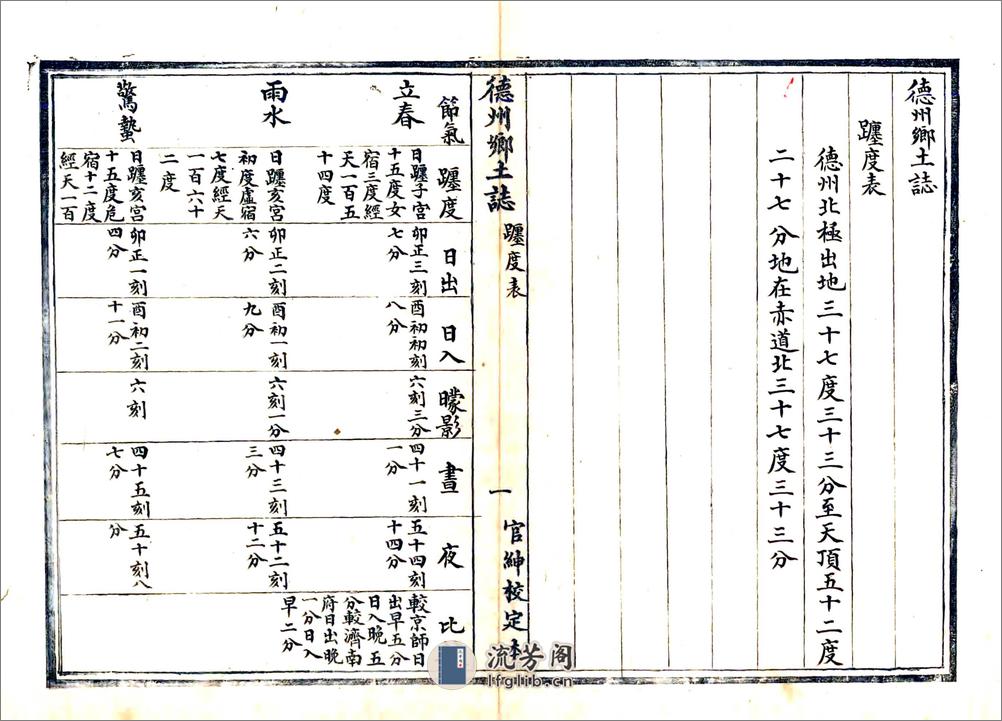 德州鄉土誌
躔度表
德州北極出地三十七度三十三分至天頂五十二度
二十七分地在赤道北三十七度三十三分
德州鄉土誌 躔度表 一 官紳校定本
節氣 躔度 日出 日入 曚影 晝 夜 比
立春
日躔子宮
十五度女
宿三度經
天一百五
十四度
卯正三刻
七分
酉初初刻
八分
六刻三分
四十一刻
一分
五十四刻
十四分
較京師日
出早五分
日入晚五
分較濟南
府日出晚
一分日入
早二分
雨水
日躔亥宮
初度虛宿
七度經天
一百六十
二度
卯正二刻
六分
酉初一刻
九分
六刻一分
四十三刻
三分
五十二刻
十二分
驚蟄
日躔亥宮
十五度危
宿十二度
經天一百
卯正一刻
四分
酉初二刻
十一分
六刻
四十五刻
七分
五十刻八
分
流芳閣
lfglib.cn